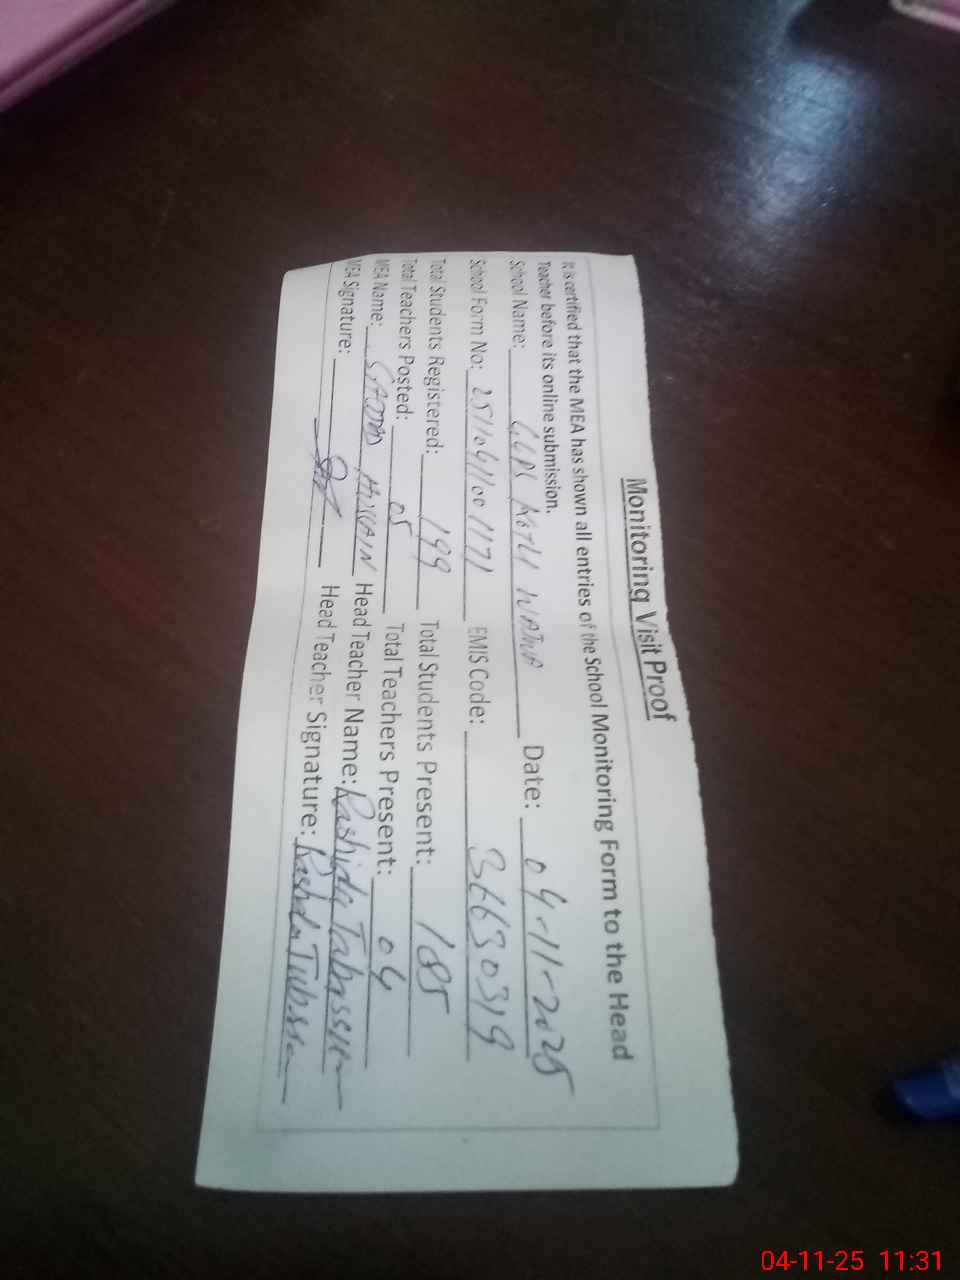 Monitoring Visit Proof
It is certified that the MEA has shown all entries of the School Monitoring Form to the Head
Teacher before its online submission.
School Name: GGPS KOTLI WATNA Date: 04-11-2025
School Form No: 2511041001171 EMIS Code: 36630319
Total Students Registered: 199 Total Students Present: 185
Total Teachers Posted: 05 Total Teachers Present: 04
MEA Name: HUSSAIN Head Teacher Name: Rashida Tabassum
MEA Signature: Head Teacher Signature: Rashida Tabassum
04-11-25 11:31